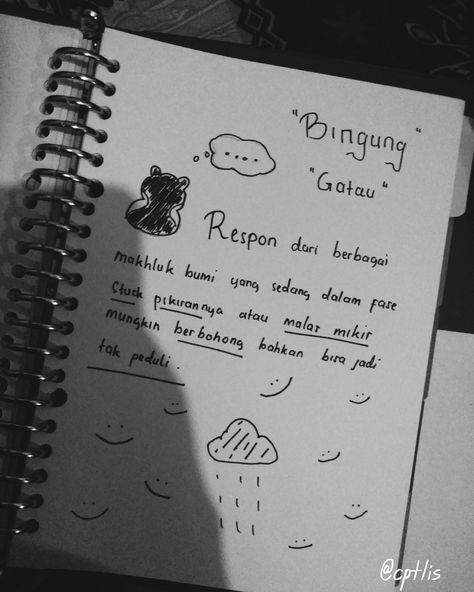 "Bingung"
"Gatau"
Respon dari berbagai
makhluk bumi yang sedang dalam fase
stuck pikirannya atau malas mikir
mungkin berbohong bahkan bisa jadi
tak peduli.
@cptlis